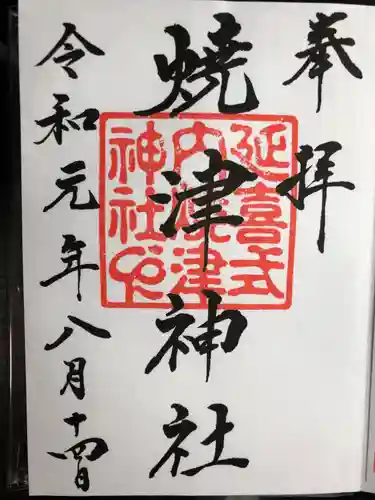 奉拝
焼津神社
延喜式
内焼津
神社之
令和元年八月十四日